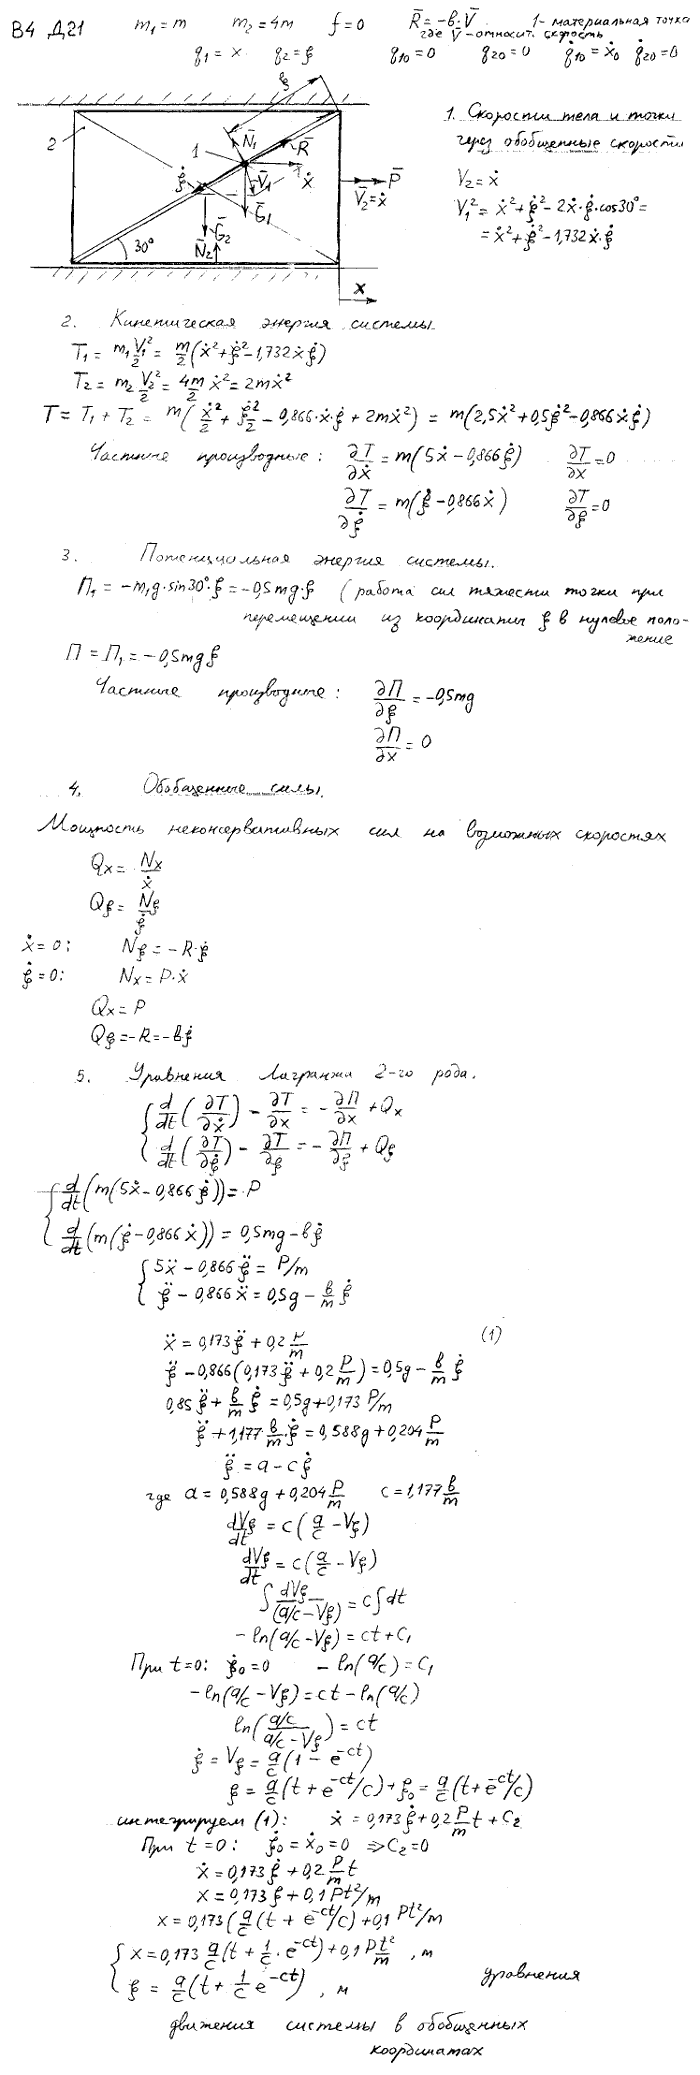 В4 Д21 m₁ = m m₂ = 4m f = 0 R̄ = -в·V̄ 1- материальная точка
где V̄ - относит. скорость
q₁ = x q₂ = ξ q₁₀ = 0 q₂₀ = 0 q̇₁₀ = ẋ₀ q̇₂₀ = 0
ξ
2 1 N̄₁ R̄
ξ̇ V̄₁ ẋ P̄
V̄₂ = ẋ
Ḡ₁
Ḡ₂
30° N̄₂
x
1. Скорости тела и точки
через обобщенные скорости
V₂ = ẋ
V₁² = ẋ² + ξ̇² - 2ẋ·ξ̇·cos30° =
= ẋ² + ξ̇² - 1,732ẋ·ξ̇
2. Кинетическая энергия системы.
T₁ = m₁V₁²/2 = m/2(ẋ² + ξ̇² - 1,732ẋξ̇)
T₂ = m₂V₂²/2 = 4m/2 ẋ² = 2mẋ²
T = T₁ + T₂ = m(ẋ²/2 + ξ̇²/2 - 0,866·ẋ·ξ̇ + 2mẋ²) = m(2,5ẋ² + 0,5ξ̇² - 0,866ẋξ̇)
Частные производные: ∂T/∂ẋ = m(5ẋ - 0,866ξ̇) ∂T/∂x = 0
∂T/∂ξ̇ = m(ξ̇ - 0,866ẋ) ∂T/∂ξ = 0
3. Потенциальная энергия системы.
П₁ = -m₁g·sin30°·ξ = -0,5mg·ξ (работа сил тяжести точки при
перемещении из координаты ξ в нулевое поло-
жение
П = П₁ = -0,5mgξ
Частные производные: ∂П/∂ξ = -0,5mg
∂П/∂x = 0
4. Обобщенные силы.
Мощность неконсервативных сил на возможных скоростях
Qx = Nx/ẋ
Qξ = Nξ/ξ̇
ẋ = 0: Nξ = -R·ξ̇
ξ̇ = 0: Nx = P·ẋ
Qx = P
Qξ = -R = -вξ̇
5. Уравнения Лагранжа 2-го рода.
{ d/dt(∂T/∂ẋ) - ∂T/∂x = -∂П/∂x + Qx
{ d/dt(∂T/∂ξ̇) - ∂T/∂ξ = -∂П/∂ξ + Qξ
{ d/dt(m(5ẋ - 0,866ξ̇)) = P
{ d/dt(m(ξ̇ - 0,866ẋ)) = 0,5mg - вξ̇
{ 5ẍ - 0,866ξ̈ = P/m
{ ξ̈ - 0,866ẍ = 0,5g - в/m ξ̇
ẍ = 0,173ξ̈ + 0,2 P/m (1)
ξ̈ - 0,866(0,173ξ̈ + 0,2 P/m) = 0,5g - в/m ξ̇
0,85ξ̈ + в/m ξ̇ = 0,5g + 0,173 P/m
ξ̈ + 1,177 в/m·ξ̇ = 0,588g + 0,204 P/m
ξ̈ = a - cξ̇
где a = 0,588g + 0,204 P/m c = 1,177 в/m
dVξ/dt = c(a/c - Vξ)
dVξ/dt = c(a/c - Vξ)
∫ dVξ/(a/c - Vξ) = c∫dt
-ln(a/c - Vξ) = ct + C₁
При t = 0: ξ̇₀ = 0 -ln(a/c) = C₁
-ln(a/c - Vξ) = ct - ln(a/c)
ln((a/c)/(a/c - Vξ)) = ct
ξ̇ = Vξ = a/c(1 - e^(-ct))
ξ = a/c(t + e^(-ct)/c) + ξ₀ = a/c(t + e^(-ct)/c)
интегрируем (1): ẋ = 0,173ξ̇ + 0,2 P/m t + C₂
При t = 0: ξ̇₀ = ẋ₀ = 0 ⇒ C₂ = 0
ẋ = 0,173ξ̇ + 0,2 P/m t
x = 0,173ξ + 0,1Pt²/m
x = 0,173(a/c(t + e^(-ct)/c) + 0,1 Pt²/m
{ x = 0,173 a/c(t + 1/c·e^(-ct)) + 0,1 Pt²/m , м
{ ξ = a/c(t + 1/c e^(-ct)) , м уравнения
движения системы в обобщенных
координатах